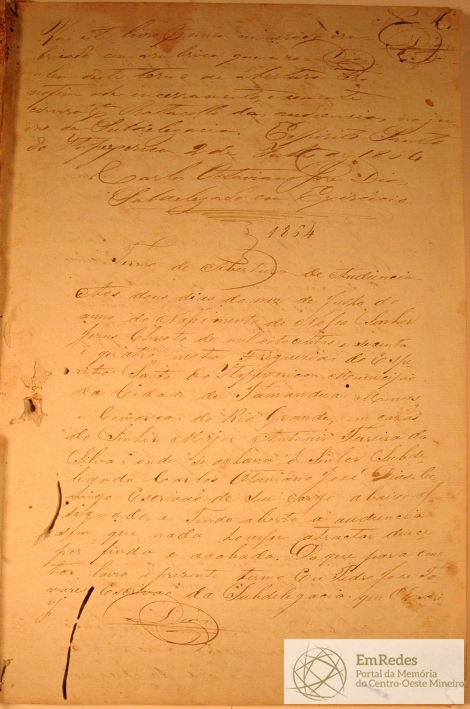 Vai este livro
bricado com a rubrica que uso Dias
tem de encerramento, e somente
hira p.ª Protocollo da audiencias no jui
zo da Subdelegacia. Espirito Santo
de Itapecerica 2 de Julho de 1864
Carlos Otaviano José Dias
Subdelegado em Exercicio
1864
Termo de Abertura de Audiencia
Aos dous dias do mez de Julho do
anno do Nascimento de Nosso Senhor
Jezus Christo de mil oitocentos e secenta
e quatro nesta Freguezia do Espi
rito Santo de Itapecerica Municipio
da Cidade de Tamanduá Minas
e Comarca do Rio Grande, em cazas
do Senhor Major Antonio Ferreira da
Silva, onde se achava o Senhor Subde
legado Carlos Otaviano José Dias, co
migo Escrivão de seu cargo abaixo as
signado, e sendo aberta a audiencia
sem que nada houvese a tractar deu
por finda e acabada. De que para cons
tar lavro o prezente termo Eu Pedro José Ta
vares Escrivão da Subdelegacia que Escri
vy
Dias
EmRedes
Portal da Memória
do Centro-Oeste Mineiro